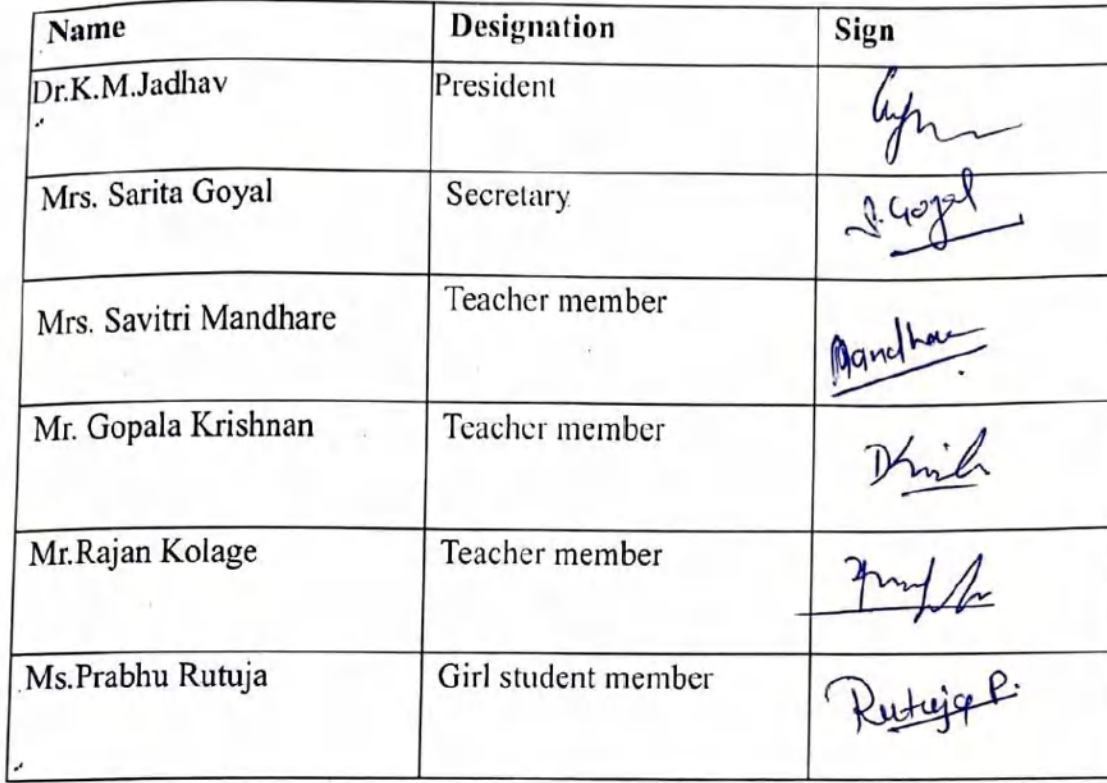 Name Designation Sign
Dr.K.M.Jadhav President
Mrs. Sarita Goyal Secretary S.Goyal
Mrs. Savitri Mandhare Teacher member Mandhare
Mr. Gopala Krishnan Teacher member
Mr.Rajan Kolage Teacher member
Ms.Prabhu Rutuja Girl student member Rutuja P.